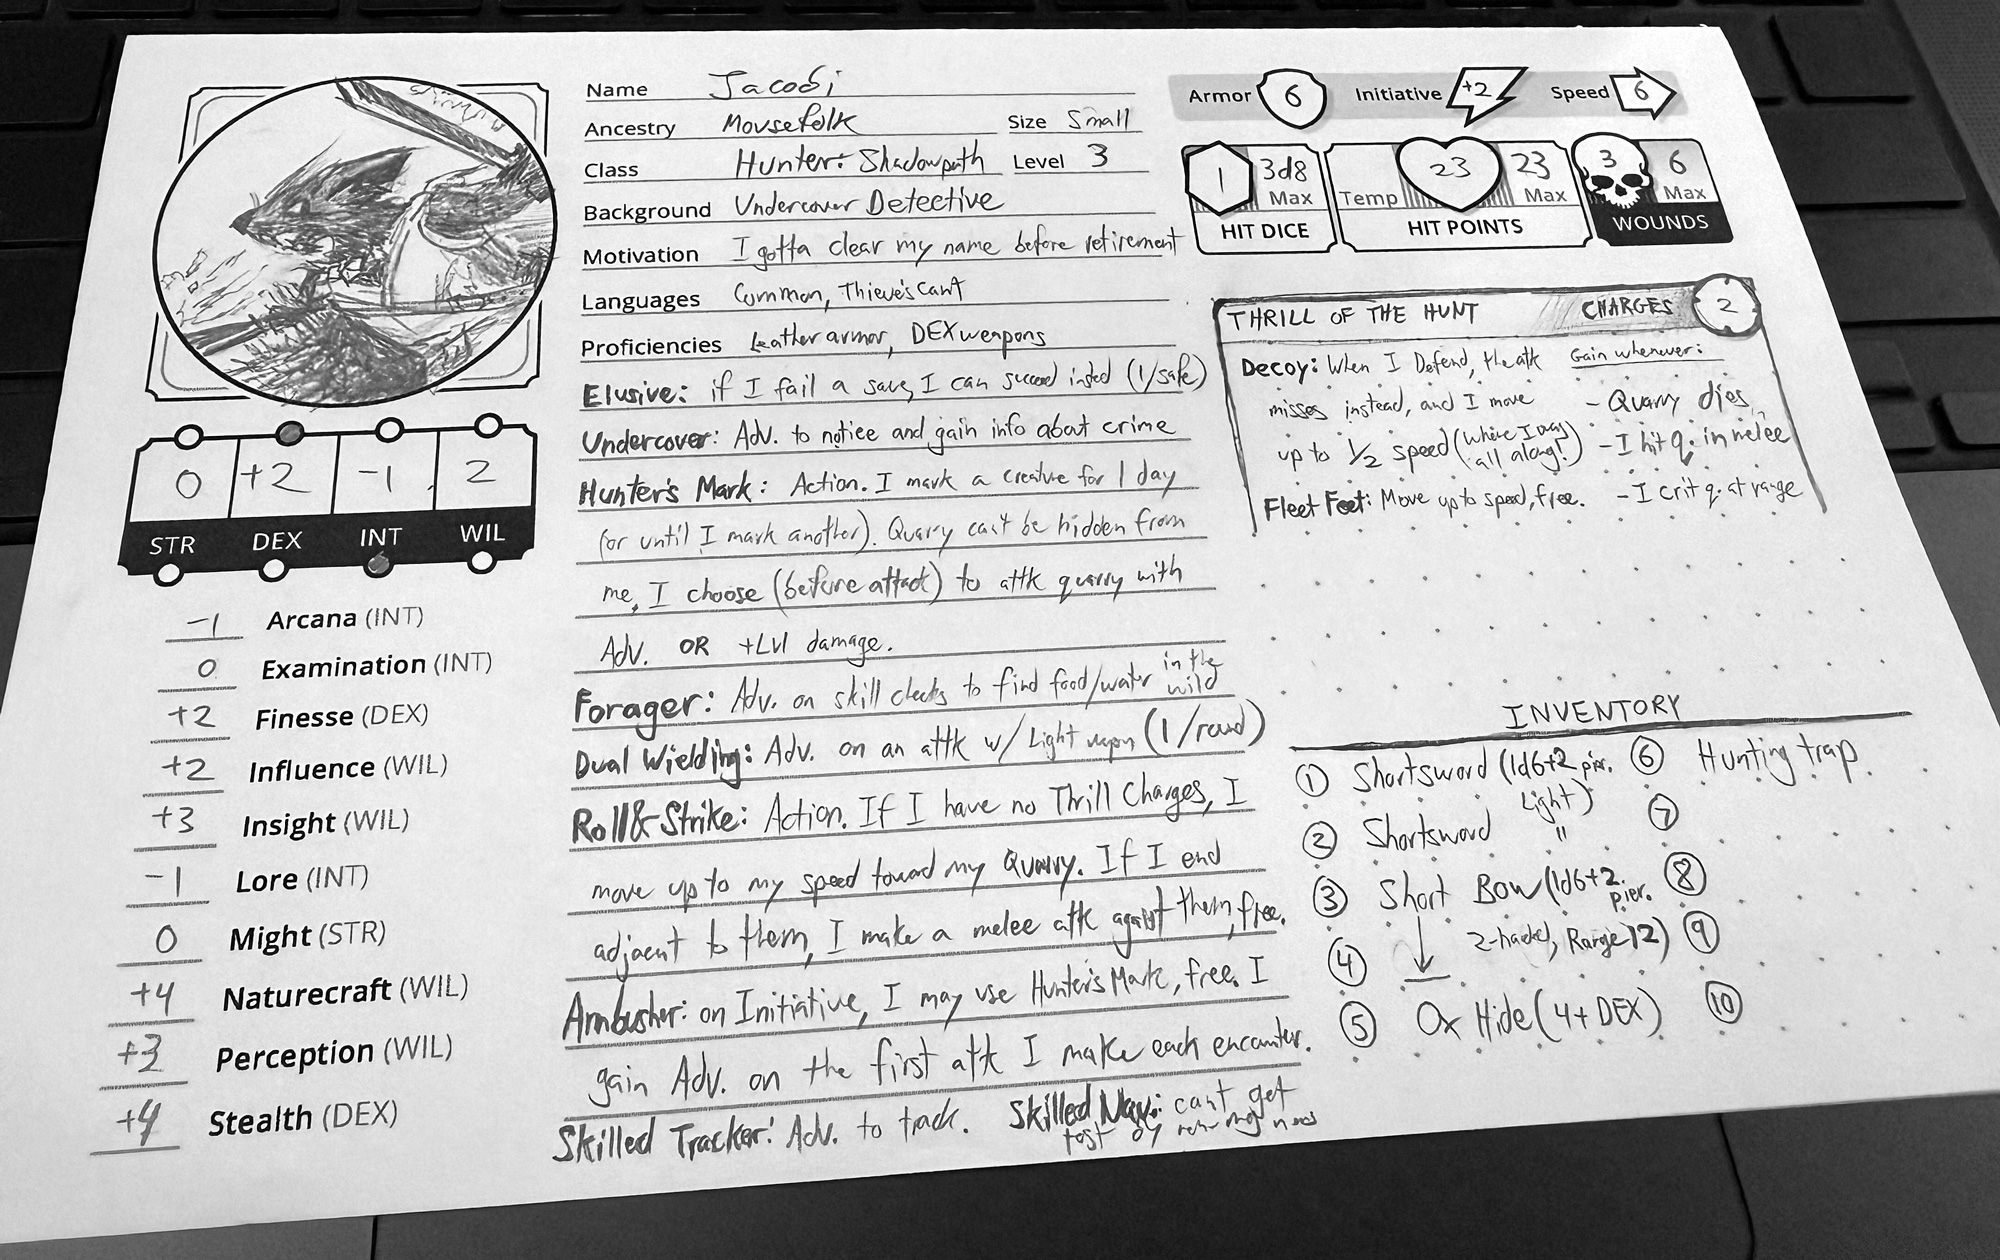 Name Jacobi
Ancestry Mousefolk Size Small
Class Hunter: Shadowpath Level 3
Background Undercover Detective
Motivation I gotta clear my name before retirement
Languages Common, Thieve's Cant
Proficiencies Leather armor, DEX weapons
Elusive: if I fail a save, I can succeed insted (1/safe)
Undercover: Adv. to notice and gain info about crime
Hunter's Mark: Action. I mark a creature for 1 day
(or until I mark another). Quarry can't be hidden from
me, I choose (before attack) to attk quarry with
Adv. OR +Lvl damage.
Forager: Adv. on skill checks to find food/water in the wild
Dual Wielding: Adv. on an attk w/ Light weapn (1/round)
Roll & Strike: Action. If I have no Thrill Charges, I
move up to my speed toward my Quarry. If I end
adjacent to them, I make a melee attk against them, free.
Ambusher: on Initiative, I may use Hunter's Mark, free. I
gain Adv. on the first attk I make each encounter.
Skilled Tracker: Adv. to track. Skilled Nav.: can't get
lost by
0 +2 -1 2
STR DEX INT WIL
-1 Arcana (INT)
0 Examination (INT)
+2 Finesse (DEX)
+2 Influence (WIL)
+3 Insight (WIL)
-1 Lore (INT)
0 Might (STR)
+4 Naturecraft (WIL)
+3 Perception (WIL)
+4 Stealth (DEX)
Armor 6 Initiative +2 Speed 6
1 3d8 Max
HIT DICE
Temp 23 23 Max
HIT POINTS
3 6 Max
WOUNDS
THRILL OF THE HUNT CHARGES 2
Decoy: When I Defend, the attk
misses instead, and I move
up to 1/2 speed (where I was
all along!)
Fleet Feet: Move up to speed, free.
Gain whenever:
- Quarry dies
- I hit q. in melee
- I crit q. at range
INVENTORY
1 Shortsword (1d6+2 pier.
Light)
2 Shortsword "
3 Short Bow (1d6+2 pier.
2-handed, Range 12)
4
5 Ox Hide (4+DEX)
6 Hunting trap
7
8
9
10